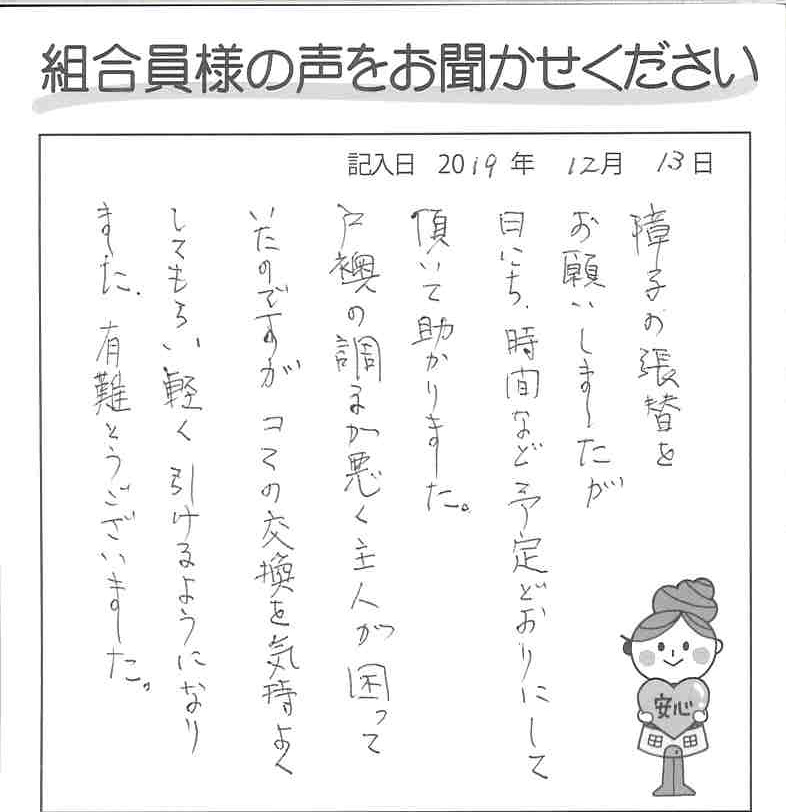 組合員様の声をお聞かせください
記入日 2019年 12月 13日
障子お張替を
お願いしましたが
日にち、時間など予定どおりにして
頂いて助かりました。
戸襖の調子が悪く主人が困って
いたのですが コマの交換を気持よく
してもらい軽く引けるようになり
ました、有難とうございました。
安心